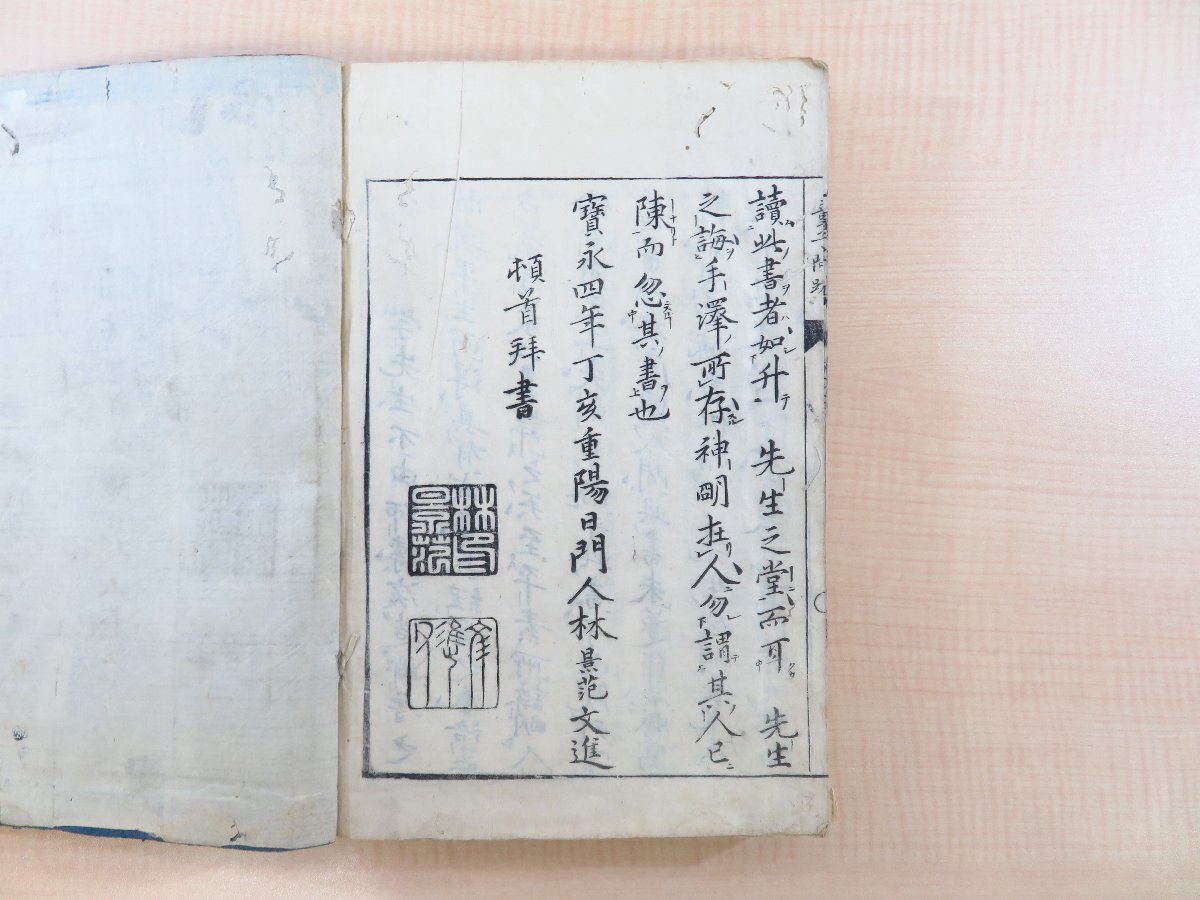 讀此書者如升 先生之堂而耳 先生
之誨手澤所存神明在人勿謂其人已
陳而忽其書也
寶永四年丁亥重陽日門人林景范文進
頓首拜書
林印景范